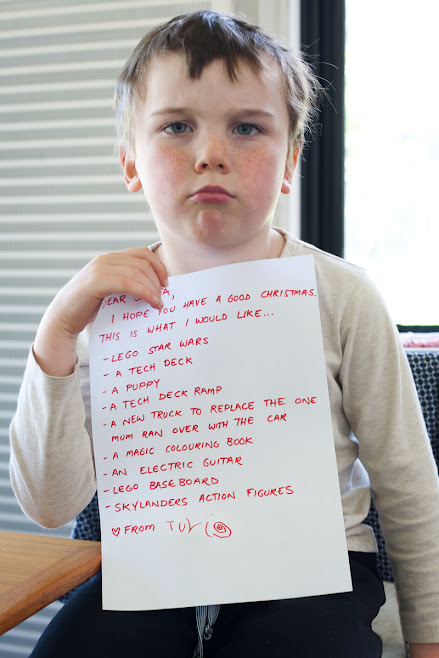 DEAR
I HOPE YOU HAVE A GOOD CHRISTMAS.
THIS IS WHAT I WOULD LIKE...
- LEGO STAR WARS
- A TECH DECK
- A PUPPY
- A TECH DECK RAMP
- A NEW TRUCK TO REPLACE THE ONE
MUM RAN OVER WITH THE CAR
- A MAGIC COLOURING BOOK
- AN ELECTRIC GUITAR
- LEGO BASEBOARD
- SKYLANDERS ACTION FIGURES
♡ FROM